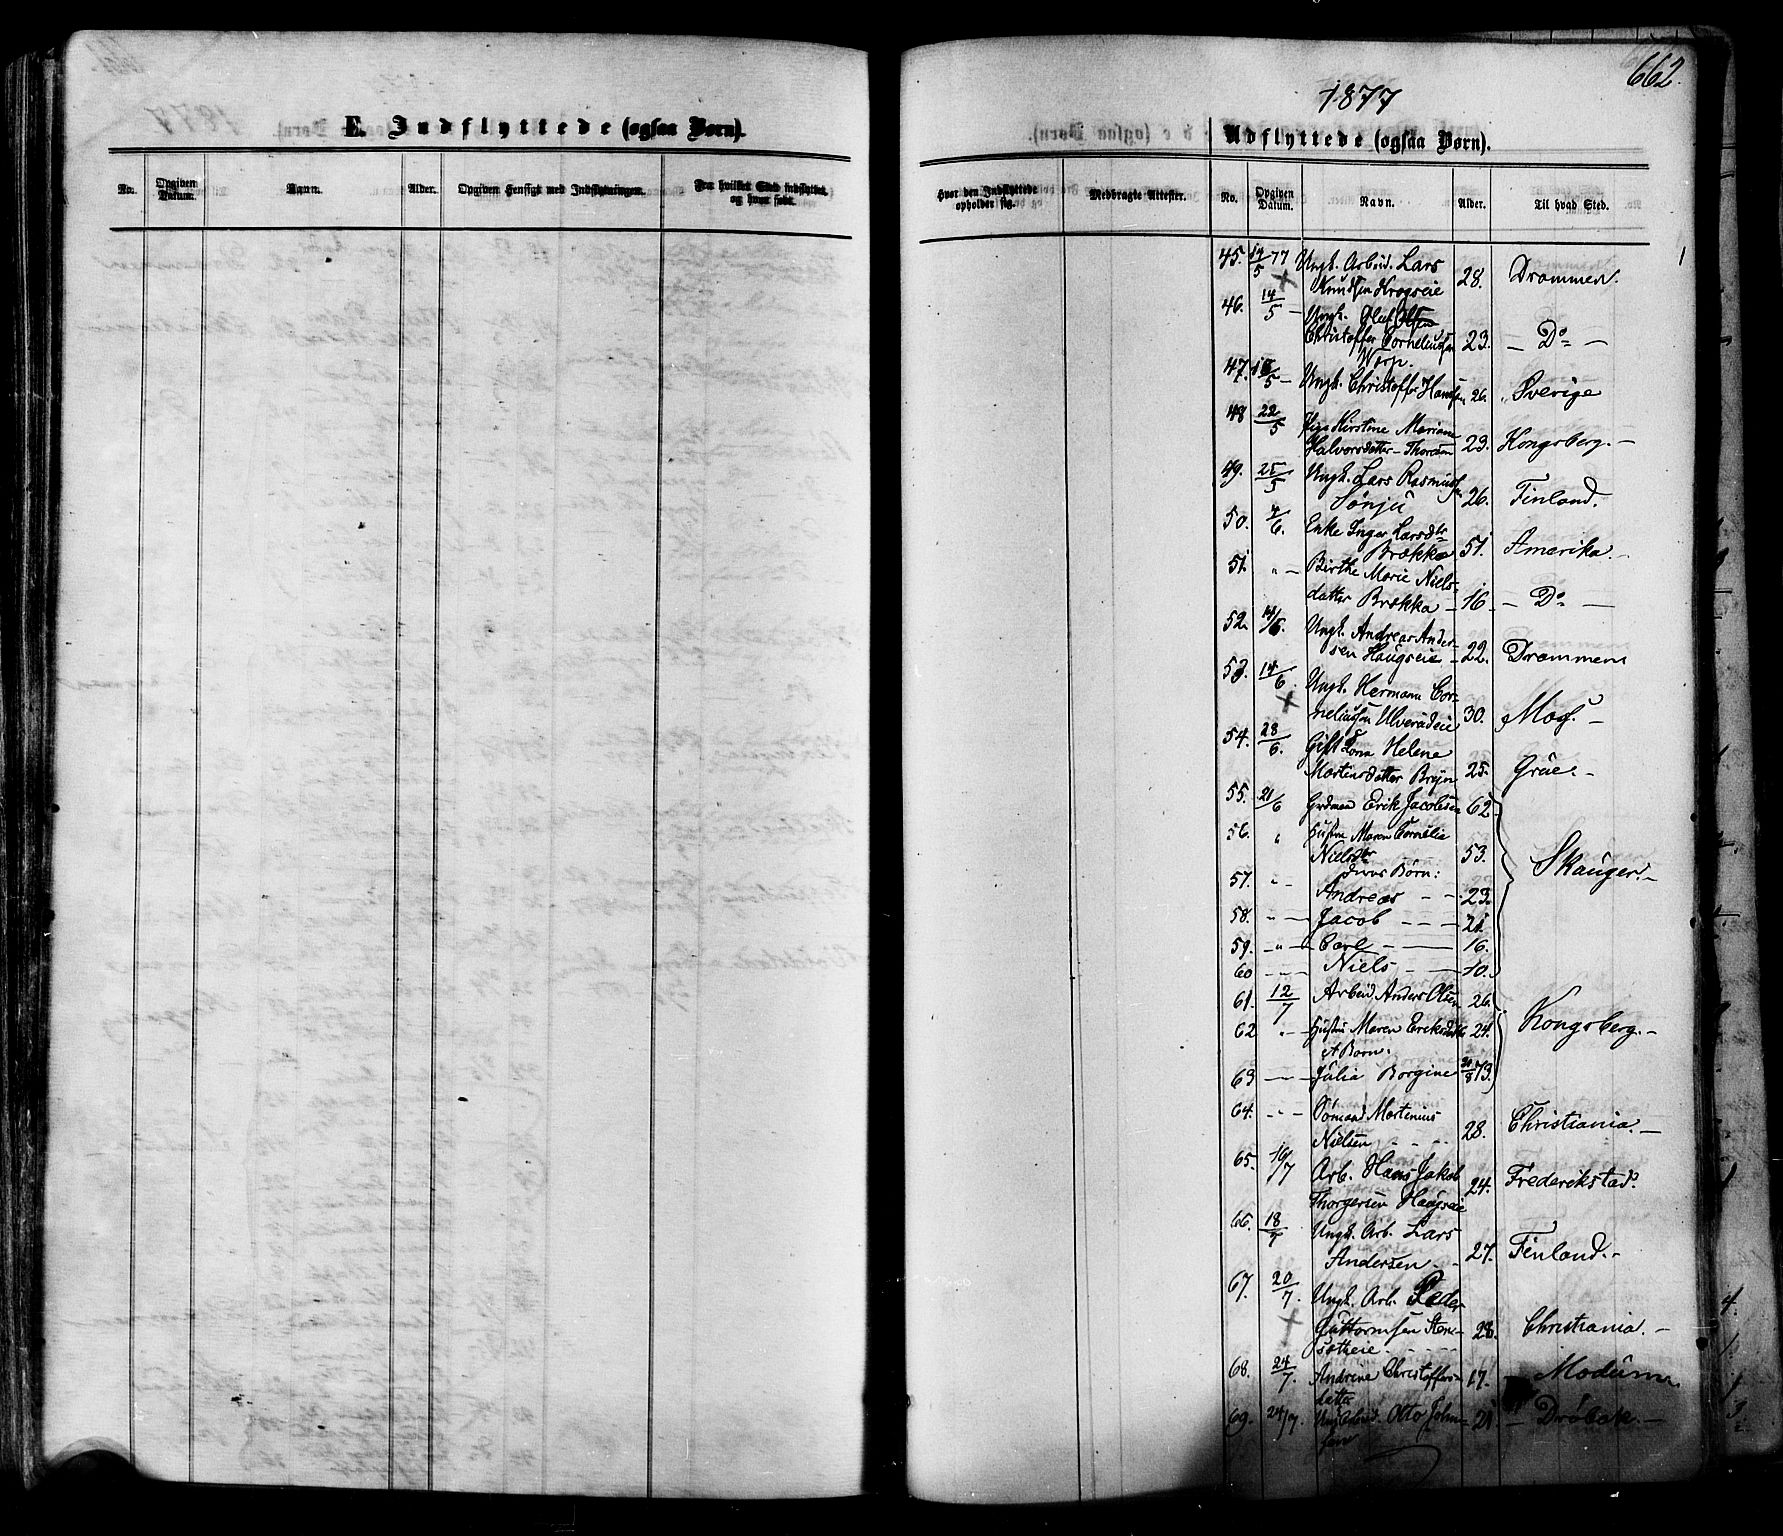 662.
1877
E. Indflyttede (ogsaa Børn).
Udflyttede (ogsaa Børn).
No. Opgiven Datum. Navn. Alder. Opgiven Hensigt med Indflytningen. Fra hvilket Sted indflyttet og hvor født.
Hvor den Indflyttede opholder sig. Medbragte Attester. No. Opgiven Datum. Navn. Alder. Til hvad Sted.
45. 14/5 77 Ungk. Arbeid. Lars
Knudsen Krogseie 28. Drammen.
46. 14/5 – Ungk. Oluf Olsen
Christoffer Corneliussen 23. – Do –
Werp.
47. 15/5 – Ungk. Christoffer Hansen 26. Sverige
48 22/5 Pige Kirstine Mariane
Halvorsdatter – 23. Kongsberg. –
49. 25/5 Ungk. Lars Rasmussen
26. Finland.
50. 4/6. Enke Inger Larsdtr
Brækka 51. Amerika. –
51. " – Birthe Marie Niels-
datter Brækka – 16 – Do –
52. 14/6. Ungk. Andreas Ander-
sen Haugseie – 22. Drammen
53. 14/6 Ungk. Hermann Cor-
neliussen 30. Moss. –
54. 28/6. Gift Helene
Martinsdatter Bryn 25. Grue. –
55. 21/6 Grdmn Erik Jacobsen 62
56. " Hustru Maren Cornelia
Nielsdtr 53. Skauger. –
57. " – Børn:
Andreas – – 23.
58. " – Jacob – – – 21.
59. – " – Carl – – 16.
60 – – – Niels – – 10.
61. 12/7 Arbeid Anders Olsen 26.
62 " – Hustru Maren Eriksdtr 24. Kongsberg. –
et Barn:
63 – – – Julia Borgine 30/8 73.
64. " – Sømand Martinius
Nielsen 28. Christiania. –
65. 16/7 Arb. Hans Jakob
Thorgersen Haugseie 24. Frederikstad.
66. 18/7 Ungk. Arb. Lars
Andersen – 27. Finland. –
67. 20/7. Ungk. Arb. Peder
Guttormsen Sten-
setheie. 28. Christiania. –
68. 24/7. Andrine Christoffers-
datter 17. – Modum
69. 24/7. Otto John-
sen 21 – Drøbak –